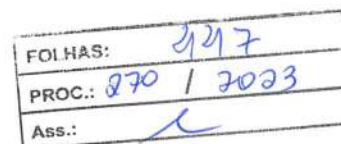 FOLHAS: 447
PROC.: 270 / 2023
Ass.: